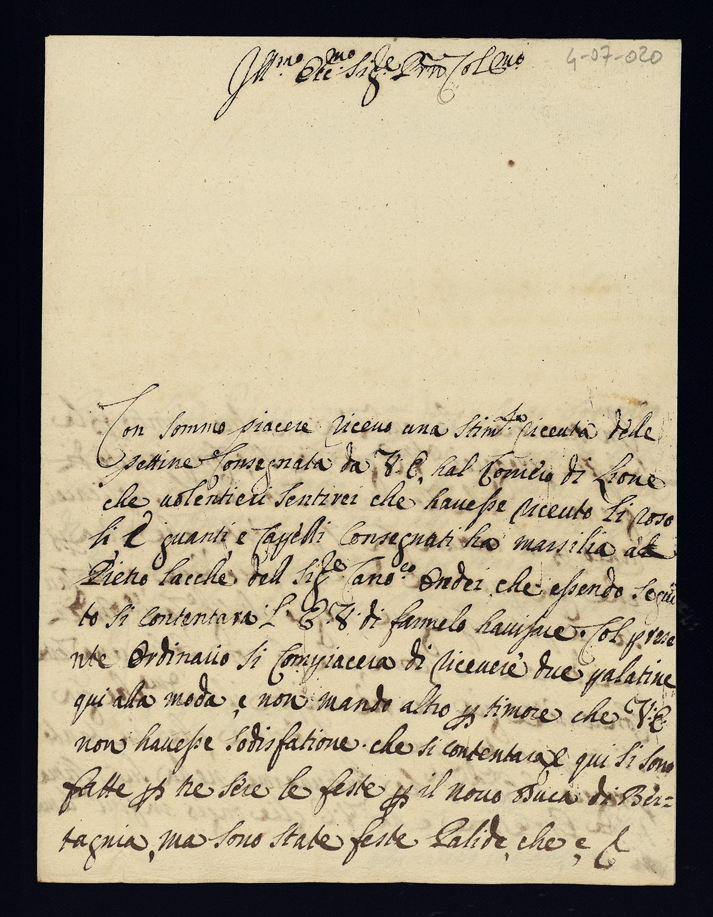 4-07-020
Ill.mo Ecc.mo Sig.e Prn Col.mo
Con sommo piacere ricevo una stim.ta ricevuta delle
pettine Consegnata da V. E. hal Coriero di Lione
che volentieri sentirei che havesse ricevuto li roso
li e guanti e Capelli Consegnati ha marsilia al
Pietro lacchè del Sig.e Cano.co Ordei che essendo segui
to si contentara L' E. V. di farmelo havisare. Col prese
nte Ordinario si Compiacera di ricevere due palatine
qui alla moda, e non mando altro p timore che V. E.
non havesse sodisfatione. che si contentara e qui si sono
fatte p tre sere le feste p il novo Duca di Ber=
tagnia, ma sono state feste Palide, che e, C